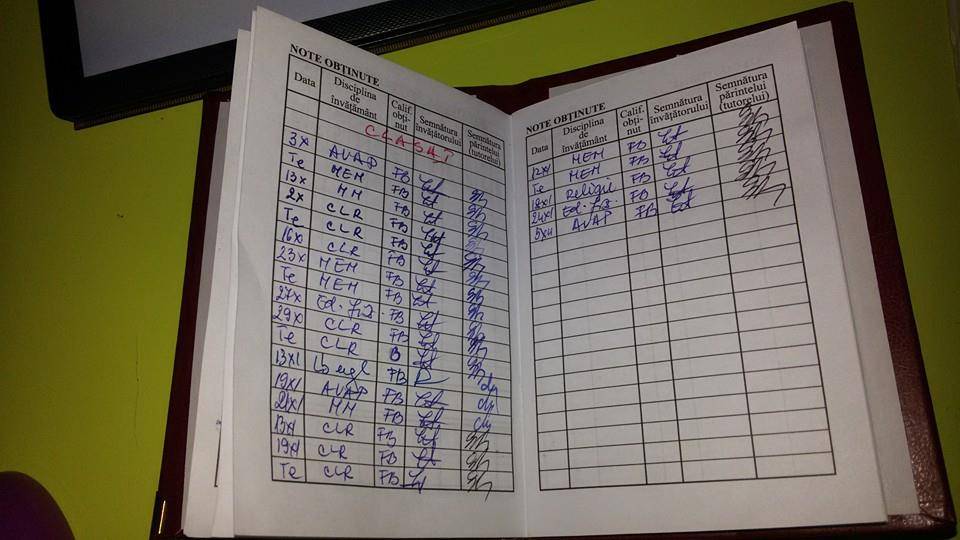 NOTE OBȚINUTE
Data Disciplina de învățământ Calif. obți-nut Semnătura învățătorului Semnătura părintelui (tutorelui)
CLASA I
3X AVAP FB
Te MEM FB
13X MM FB
2X CLR FB
Te CLR FB
16X CLR FB
23X MEM FB
Te MEM FB
27X Ed. fiz. FB
29X CLR FB
Te CLR B
13XI Lb engl FB
19XI AVAP FB
MM FB
13XI CLR FB
19XI CLR FB
Te CLR FB
NOTE OBȚINUTE
Data Disciplina de învățământ Calif. obți-nut Semnătura învățătorului Semnătura părintelui (tutorelui)
12XI MEM FB
Te MEM FB
18XI Religie FB
24XI Ed. fiz. FB
5XII AVAP FB